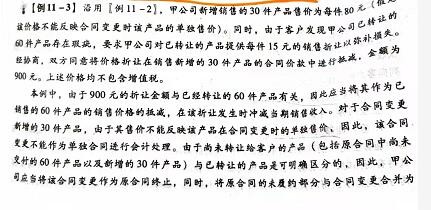 【例11-3】沿用【例11-2】，甲公司新增销售的30件产品售价为每件80元（假定
该价格不能反映合同变更时该产品的单独售价）。同时，由于客户发现甲公司已转让的
60件产品存在瑕疵，要求甲公司对已转让的产品提供每件15元的销售折让以弥补损失。
经协商，双方同意将价格折让在销售新增的30件产品的合同价款中进行抵减，金额为
900元。上述价格均不包含增值税。
本例中，由于900元的折让金额与已经转让的60件产品有关，因此应当将其作为已
销售的60件产品的销售价格的抵减，在该折让发生时冲减当期销售收入。对于合同变更
新增的30件产品，由于其售价不能反映该产品在合同变更时的单独售价，因此，该合同
变更不能作为单独合同进行会计处理。由于尚未转让给客户的产品（包括原合同中尚未
交付的60件产品以及新增的30件产品）与已转让的产品是可明确区分的，因此，甲公
司应当将该合同变更作为原合同终止，同时，将原合同的未履约部分与合同变更合并为